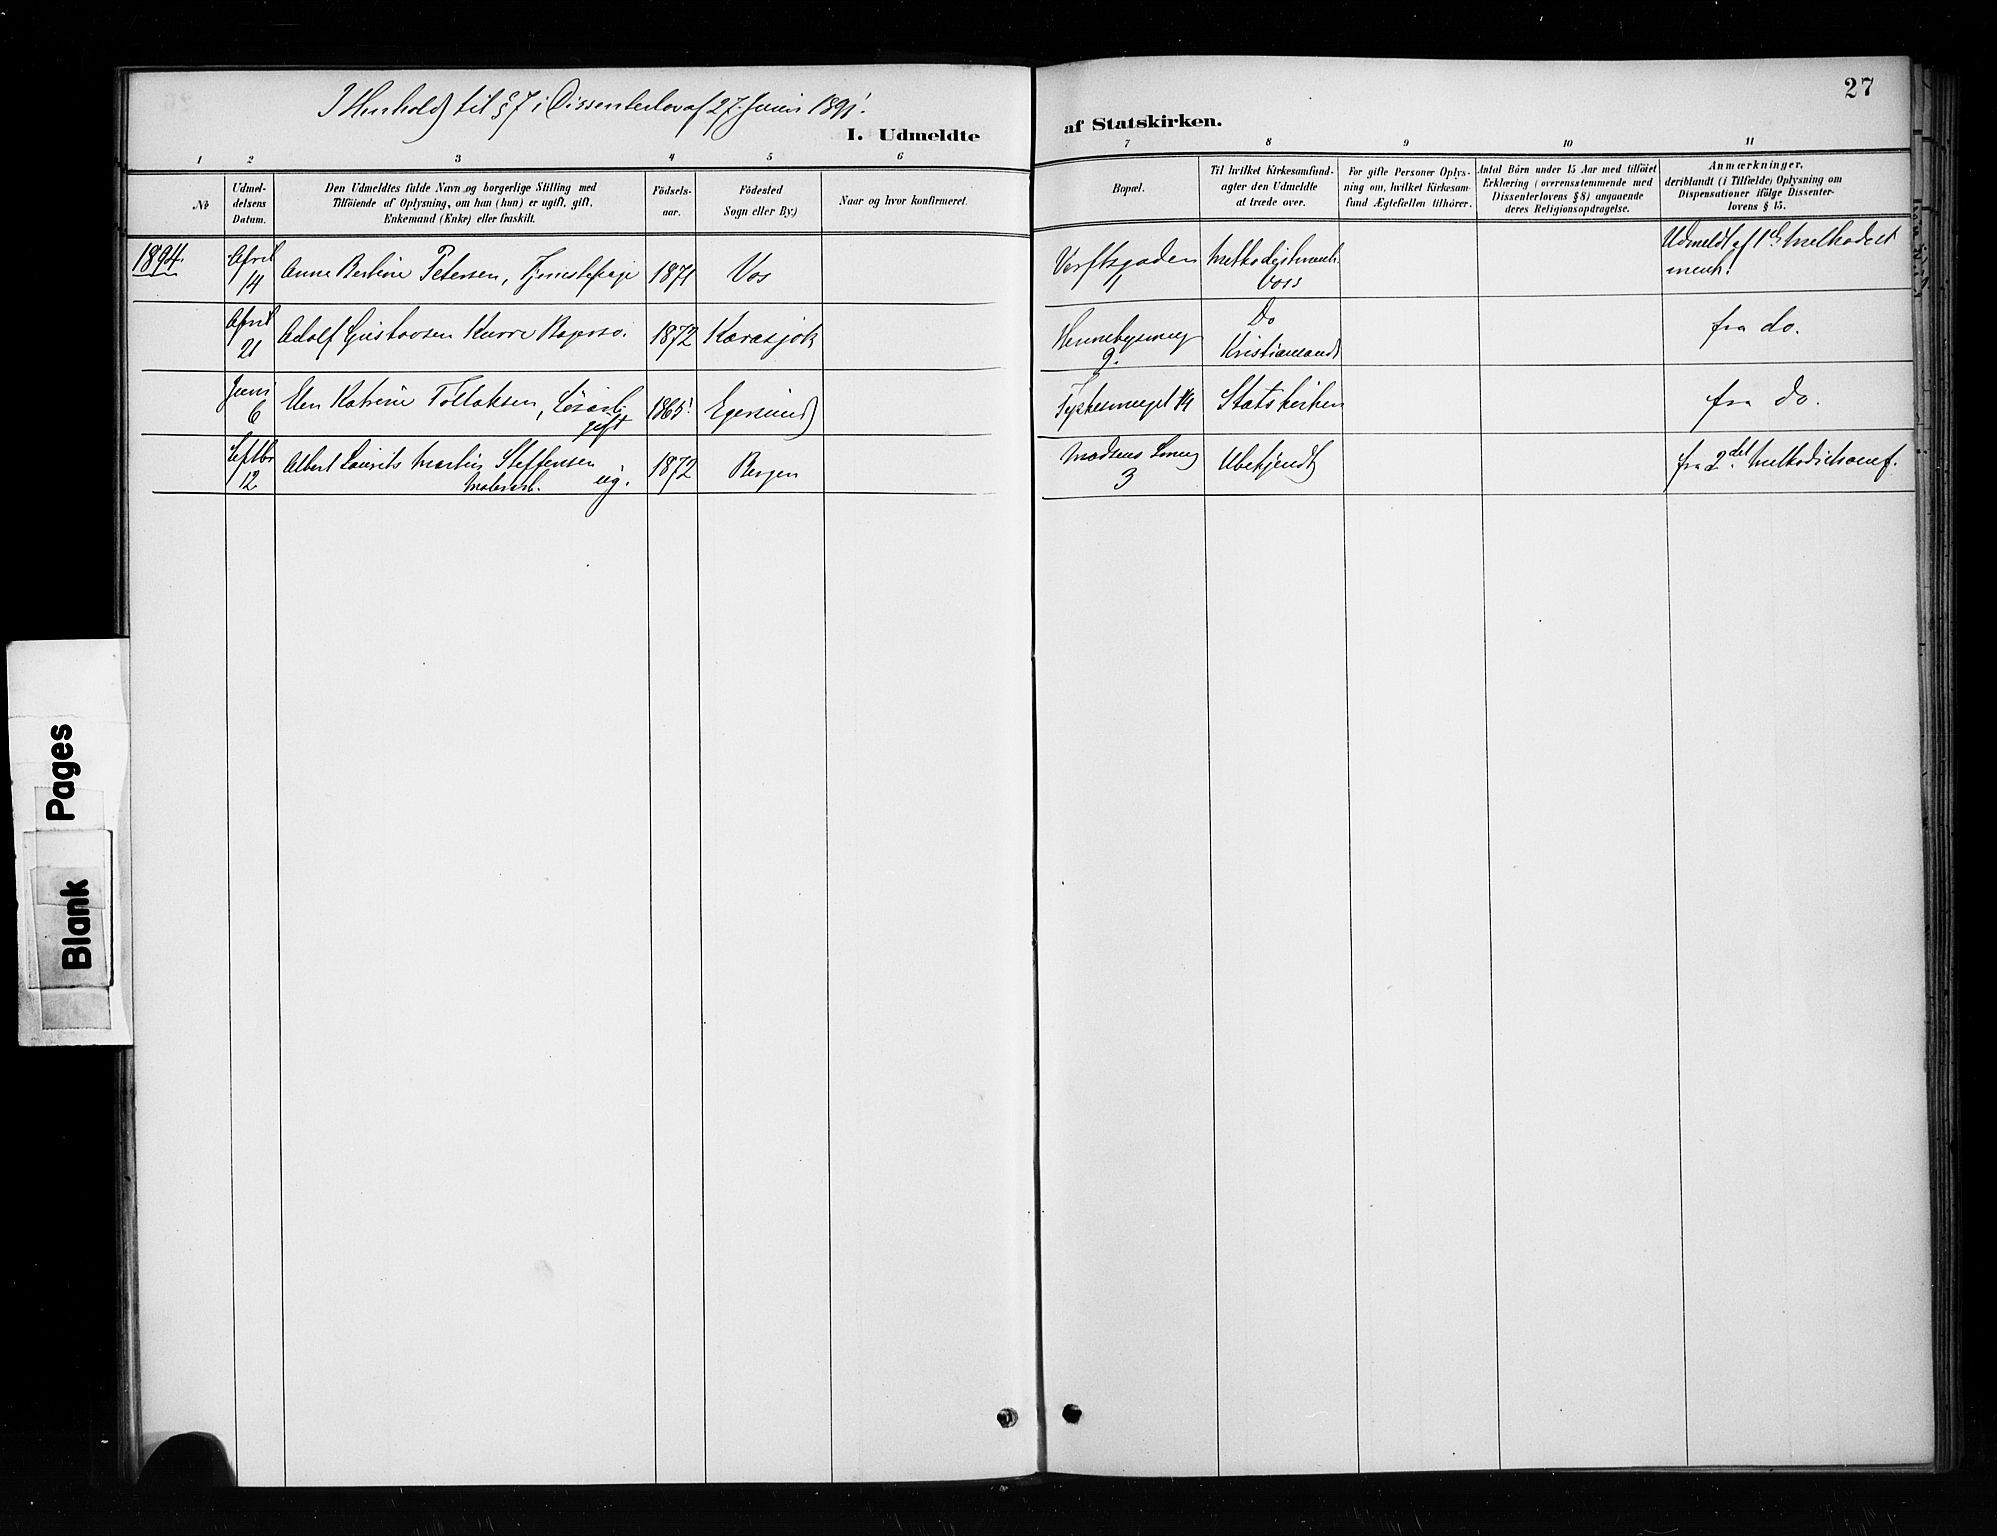 27
I Henhold til § 7 i Dissenterlov af 27. Juni 1891.
I. Udmeldte af Statskirken.
1 2 3 4 5 6 7 8 9 10 11
№
Udmel-
delsens
Datum.
Den Udmeldtes fulde Navn og borgerlige Stilling med
Tilføiende af Oplysning, om han (hun) er ugift, gift,
Enkemand (Enke) eller fraskilt.
Fødsels-
aar.
Fødested
Sogn eller By.)
Naar og hvor konfirmeret.
Bopæl.
Til hvilket Kirkesamfund-
agter den Udmeldte
at træde over.
For gifte Personer Oplys-
ning om, hvilket Kirkesam-
fund Ægtefællen tilhører.
Antal Børn under 15 Aar med tilføiet
Erklæring (overensstemmende med
Dissenterlovens § 8) angaaende
deres Religionsopdragelse.
Anmærkninger,
deriblandt (i Tilfælde) Oplysning om
Dispensationer ifølge Dissenter-
lovens § 15.
1894.
April
14
Anne Bertine Petersen, Tjenestepige
1871
Vos
Verftsgaden
Methodistmenh.
Voss
Udmeldt af 1ste Methodist
menh.
April
21
Adolf Gustavsen
1872
Karasjok
9.
Do
Kristiansand
fra do.
Juni
6
Elen Katrine Tollaksen,
gift
1865.
Egersund
14
Statskirken
fra do.
Septbr
12
Albert Laurits Martin Steffensen
ug.
1872
Bergen
Madsens
3
Ubekjendt
fra 2det
Blank Pages